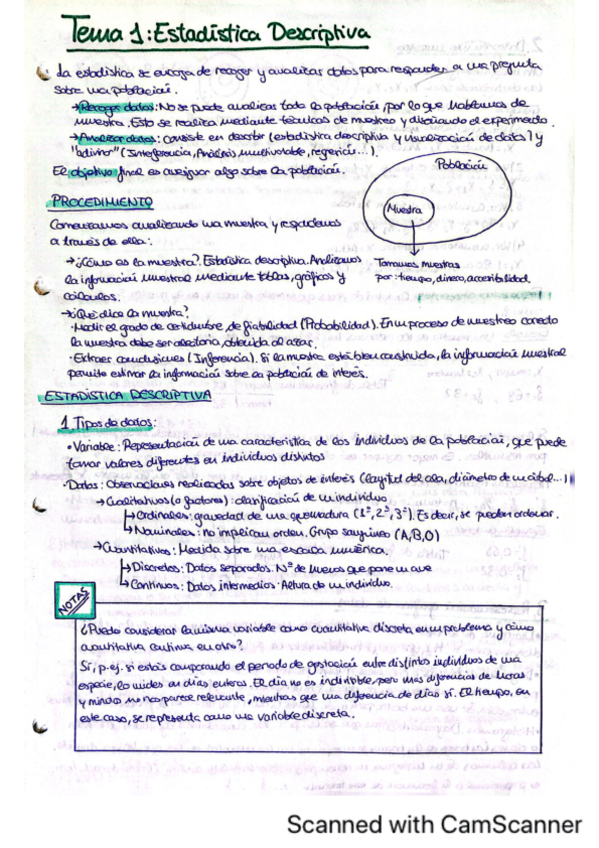 Tema 1: Estadística Descriptiva
La estadística se encarga de recoger y analizar datos para responder a una pregunta
sobre una población.
→ Recoger datos: No se puede analizar toda la población, por lo que hablamos de
muestra. Esto se realiza mediante técnicas de muestreo y diseñando el experimento.
→ Analizar datos: Consiste en describir (estadística descriptiva y visualización de datos) y
"adivinar" (Interferencia, Análisis multivariable, regresión...).
El objetivo final es averiguar algo sobre la población.
Población
Muestra
Tomamos muestras
por: tiempo, dinero, accesibilidad.
PROCEDIMIENTO
Comenzamos analizando una muestra y respondemos
a través de ella:
→ ¿Cómo es la muestra? Estadística descriptiva. Analizamos
la información muestral mediante tablas, gráficos y
cálculos.
→ ¿Qué dice la muestra?
· Medir el grado de certidumbre, de fiabilidad (Probabilidad). En un proceso de muestreo correcto
la muestra debe ser aleatoria, obtenida al azar.
· Extraer conclusiones (Inferencia). Si la muestra está bien construida, la información muestral
permite estimar la información sobre la población de interés.
ESTADÍSTICA DESCRIPTIVA
1. Tipos de datos:
· Variable: Representación de una característica de los individuos de la población, que puede
tomar valores diferentes en individuos distintos
· Datos: Observaciones realizadas sobre objetos de interés (longitud del ala, diámetro de un árbol...)
→ Cualitativos (o factores): clasificación de un individuo
↳ Ordinales: gravedad de una quemadura (1º, 2º, 3º). Es decir, se pueden ordenar.
↳ Nominales: no implican orden. Grupo sanguíneo (A, B, O)
→ Cuantitativos: Medida sobre una escala numérica.
↳ Discretos: Datos separados. Nº de huevos que pone un ave
↳ Continuos: Datos intermedios. Altura de un individuo.
NOTAS
¿Puedo considerar la misma variable como cuantitativa discreta en un problema y como
cuantitativa continua en otro?
Sí, p. ej. si estás comparando el periodo de gestación entre distintos individuos de una
especie, lo mides en días enteros. El día no es indivisible, pero unas diferencias de horas
y minutos no nos parece relevante, mientras que una diferencia de días sí. El tiempo, en
este caso, se representa como una variable discreta.
Scanned with CamScanner